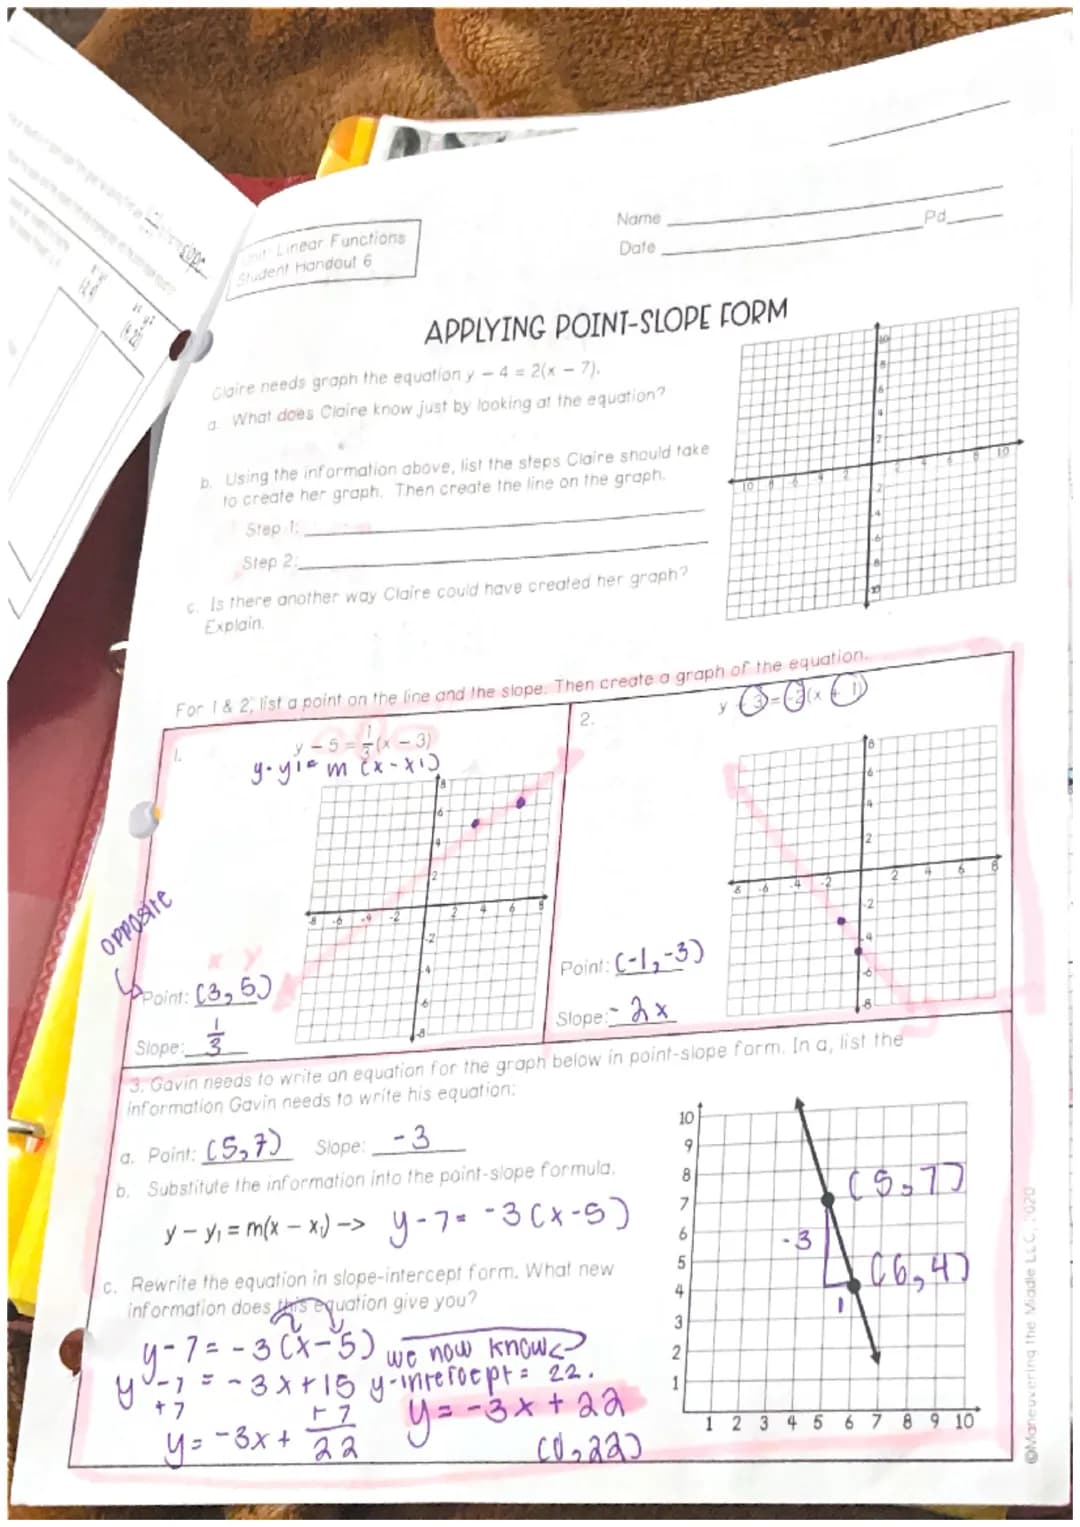 Unit: Linear Functions
Student Handout 6
Name
Date
Pd
APPLYING POINT-SLOPE FORM
Claire needs graph the equation y – 4 = 2(x – 7).
a. What does Claire know just by looking at the equation?
b. Using the information above, list the steps Claire should take
to create her graph. Then create the line on the graph.
Step 1:
Step 2:
c. Is there another way Claire could have created her graph?
Explain.
For 1 & 2, list a point on the line and the slope. Then create a graph of the equation.
1.
y – 5 = 1/3(x – 3)
y - y1 = m (x - x1)
opposite
x y
Point: (3, 5)
Slope: 1/3
2.
y + 3 = -2(x + 1)
Point: (-1, -3)
Slope: -2x
3. Gavin needs to write an equation for the graph below in point-slope form. In a, list the
information Gavin needs to write his equation:
a. Point: (5, 7) Slope: -3
b. Substitute the information into the point-slope formula.
y – y₁ = m(x – x₁) –> y - 7 = -3(x-5)
c. Rewrite the equation in slope-intercept form. What new
information does this equation give you?
y - 7 = -3(x-5) we now know
y - 7 = -3x + 15 y-intercept = 22.
+7 +7
y = -3x + 22
y = -3x + 22
(0, 22)
10
9
8
7
6
5
4
3
2
1
1 2 3 4 5 6 7 8 9 10
(5, 7)
-3
(6, 4)
1
©Maneuvering the Middle LLC, 2020